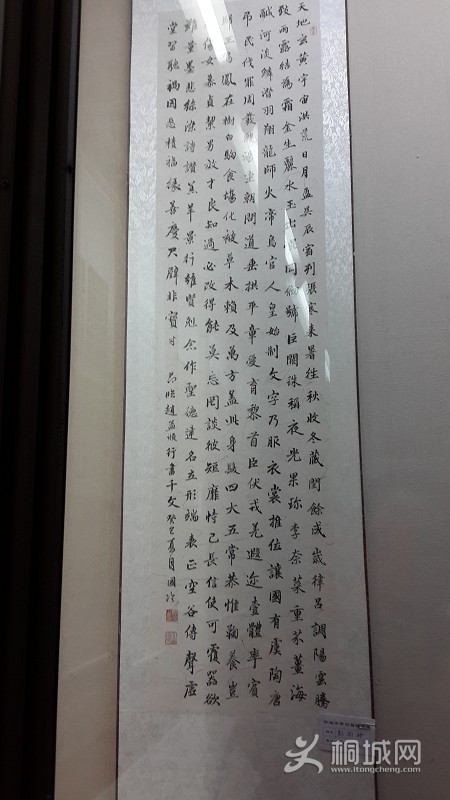 天地玄黄宇宙洪荒日月盈昃辰宿列張寒来暑往秋收冬藏閏餘成歲律呂調陽雲騰
致雨露結為霜金生麗水玉出崑岡劍號巨闕珠稱夜光果珍李柰菜重芥薑海
鹹河淡鱗潛羽翔龍師火帝鳥官人皇始制文字乃服衣裳推位讓國有虞陶唐
吊民伐罪周發殷湯坐朝問道垂拱平章愛育黎首臣伏戎羌遐迩壹體率賓
歸王鳴鳳在樹白駒食場化被草木賴及萬方蓋此身髮四大五常恭惟鞠養豈
敢毀傷女慕貞潔男效才良知過必改得能莫忘罔談彼短靡恃己長信使可覆器欲
難量墨悲絲染詩讚羔羊景行維賢剋念作聖德建名立形端表正空谷傳聲虛
堂習聽禍因惡積福緣善慶尺璧非寶寸
临趙孟頫行書千文癸巳夏月國
桐城网
www.itongcheng.com